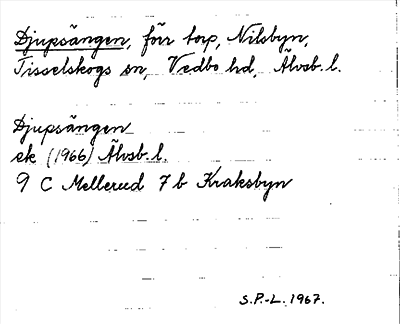 Djupsängen, förr torp, Nilsbyn,
Tisselskogs sn, Vedbo hd, Älvsb. l.
Djupsängen
ek (1966) Älvsb. l.
9 C Mellerud 7 b Kraksbyn
S.P.-L. 1967.